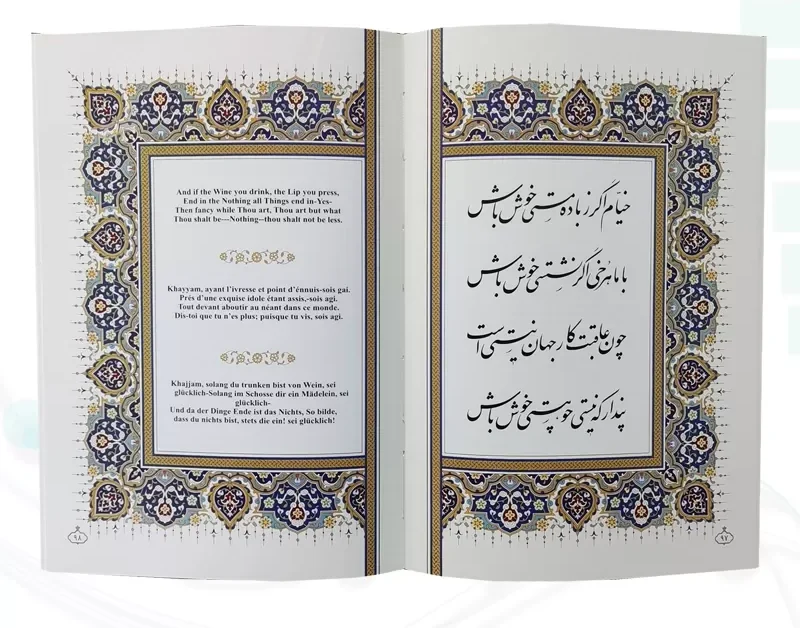 And if the Wine you drink, the Lip you press,
End in the Nothing all Things end in-Yes-
Then fancy while Thou art, Thou art but what
Thou shalt be---Nothing--thou shalt not be less.
Khayyam, ayant l'ivresse et point d'énnuis-sois gai.
Prés d'une exquise idole étant assis,-sois agi.
Tout devant aboutir au néant dans ce monde.
Dis-toi que tu n'es plus; puisque tu vis, sois agi.
Khajjam, solang du trunken bist von Wein, sei
glücklich-Solang im Schosse dir ein Mädelein, sei
glücklich-
Und da der Dinge Ende ist das Nichts, So bilde,
dass du nichts bist, stets die ein! sei glücklich!
۹۸
خیام اگر ز باده مستی خوش باش
با ماهرخی اگر نشستی خوش باش
چون عاقبت کار جهان نیستی است
پندار که نیستی چو هستی خوش باش
۹۷